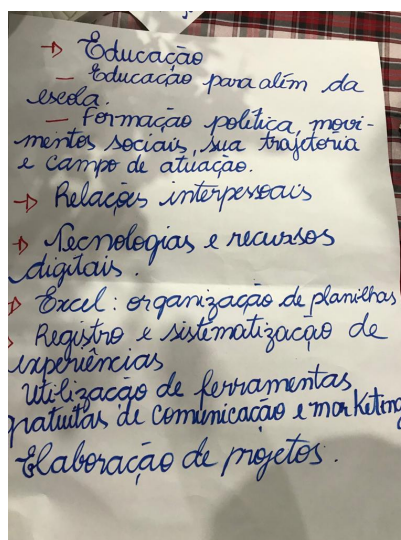 → Educação
— Educação para além da
escola.
— Formação política, movi-
mentos sociais, sua trajetória
e campo de atuação.
→ Relações interpessoais
→ Tecnologias e recursos
digitais.
→ Excel: organização de planilhas
Registro e sistematização de
experiências
Utilização de ferramentas
gratuitas de comunicação e marketing
Elaboração de projetos.